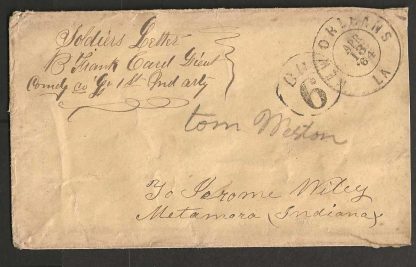 Soldiers Letter
B Frank Card Lieut
Comdg co "G" 1st Ind arty
NEW ORLEANS
LA
DUE
6
tom Weston
To Jerome Wiley
Metamora (Indiana)